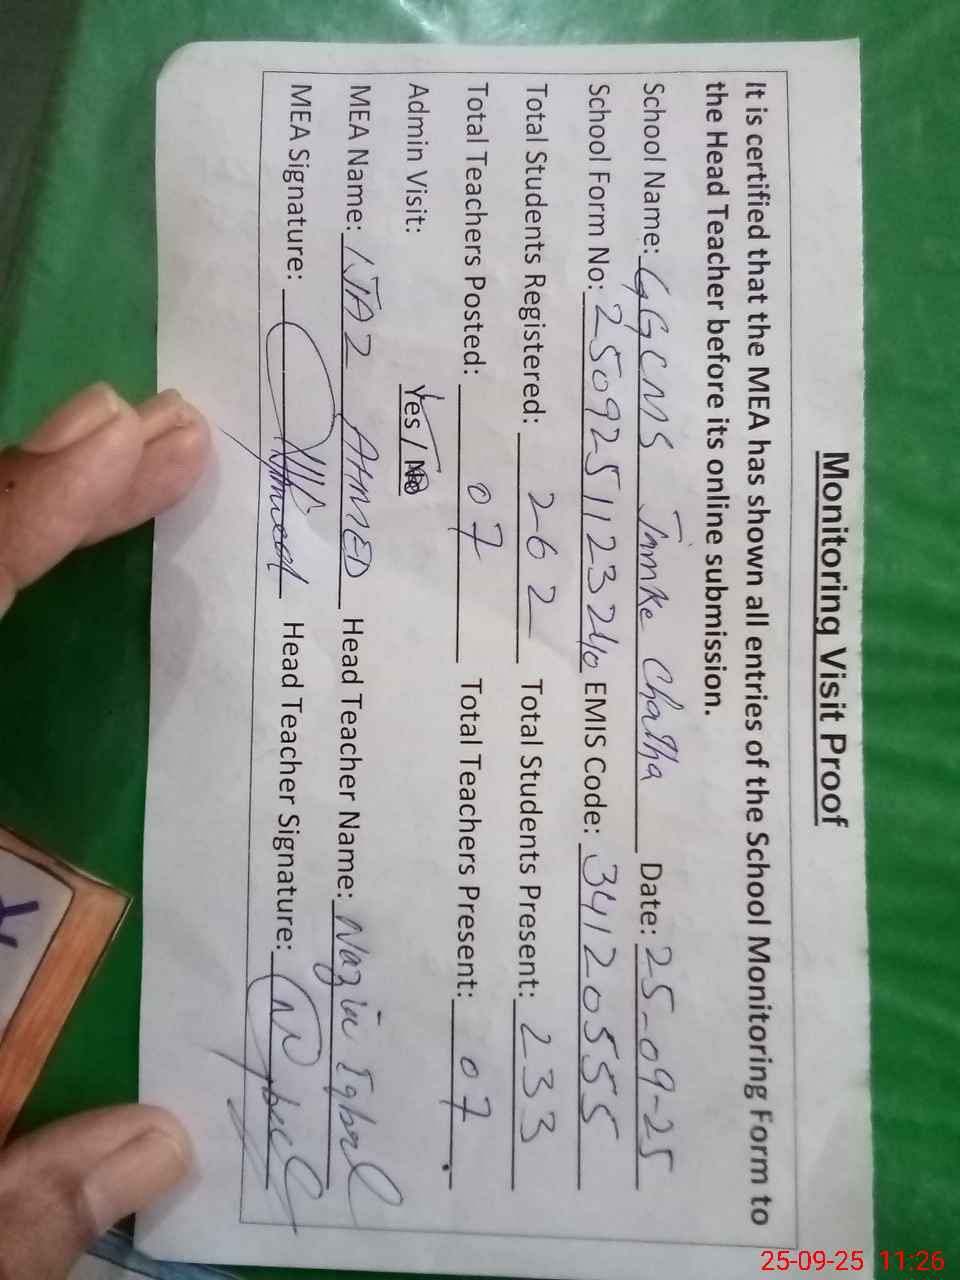 Monitoring Visit Proof
It is certified that the MEA has shown all entries of the School Monitoring Form to
the Head Teacher before its online submission.
School Name: GGCMS Chatha Date: 25-09-25
School Form No: EMIS Code: 34120555
Total Students Registered: 262 Total Students Present: 233
Total Teachers Posted: 07 Total Teachers Present: 07
Admin Visit: Yes / No
MEA Name: IJAZ AHMED Head Teacher Name: Nazia Iqbal
MEA Signature: Ahmed Head Teacher Signature:
25-09-25 11:26